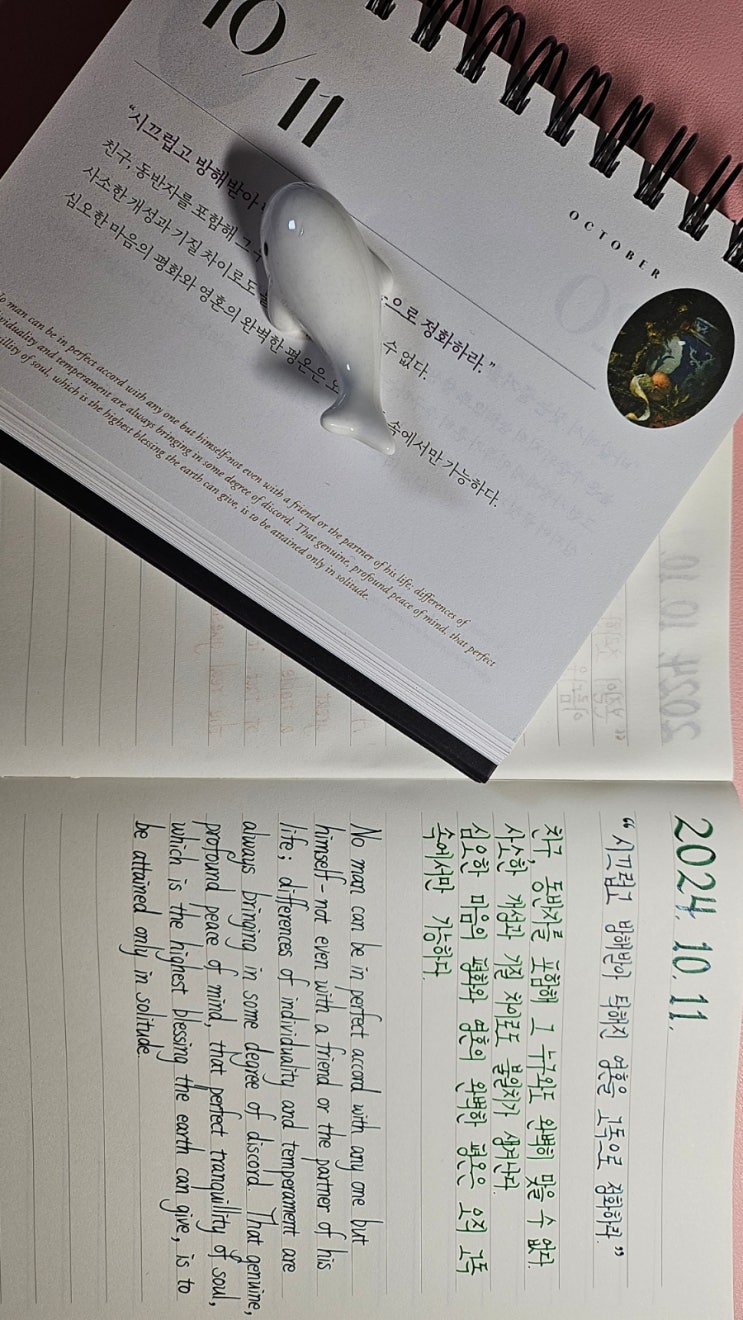 10/11
OCTOBER
“시끄럽고 방해받아 으로 정화하라.”
친구, 동반자를 포함해 그 수 없다.
사소한 개성과 기질 차이로도
심오한 마음의 평화와 영혼의 완벽한 평온은 속에서만 가능하다.
No man can be in perfect accord with any one but himself-not even with a friend or the partner of his life; differences of
individuality and temperament are always bringing in some degree of discord. That genuine, profound peace of mind, that perfect
tranquillity of soul, which is the highest blessing the earth can give, is to be attained only in solitude.
2024. 10. 10.
2024. 10. 11.
“시끄럽고 방해받아 탁해진 영혼을 고독으로 정화하라.”
친구, 동반자를 포함해 그 누구와도 완벽히 맞을 수 없다.
사소한 개성과 기질 차이로도 불일치가 생겨난다.
심오한 마음의 평화와 영혼의 완벽한 평온은 오직 고독
속에서만 가능하다.
No man can be in perfect accord with any one but
himself-not even with a friend or the partner of his
life; differences of individuality and temperament are
always bringing in some degree of discord. That genuine,
profound peace of mind, that perfect tranquillity of soul,
which is the highest blessing the earth can give, is to
be attained only in solitude.